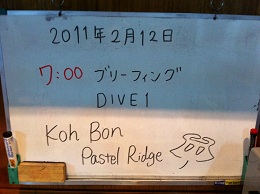 2011年2月12日
7:00 ブリーフィング
DIVE1
Koh Bon
Pastel Ridge